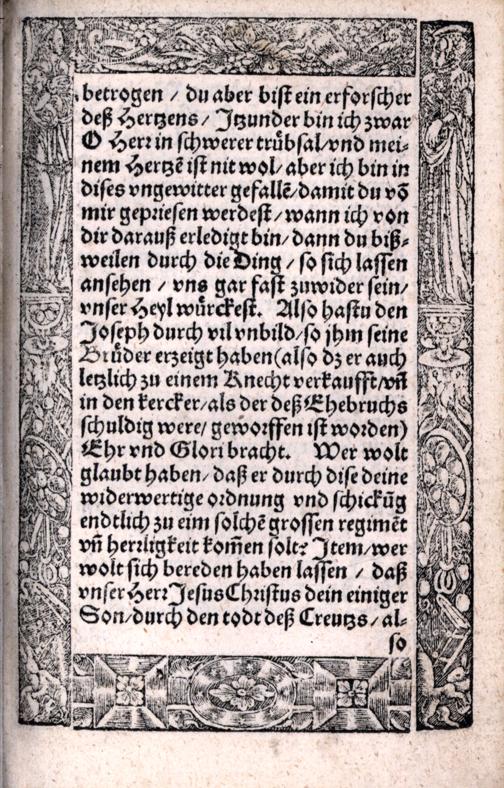 betrogen / du aber bist ein erforscher
deß Hertzens / Jtzunder bin ich zwar
O Herr in schwerer trübsal/vnd mei-
nem Hertzē ist nit wol/ aber ich bin in
dises vngewitter gefallē/damit du vō
mir gepriesen werdest/ wann ich von
dir darauß erledigt bin/ dann du biß-
weilen durch die Ding / so sich lassen
ansehen / vns gar fast zuwider sein/
vnser Heyl würckest. Also hastu den
Joseph durch vil vnbild/so jhm seine
Brüder erzeigt haben(also dz er auch
letzlich zu einem Knecht verkaufft/vn̄
in den kercker/als der deß Ehebruchs
schuldig were/ geworffen ist worden)
Ehr vnd Glori bracht. Wer wolt
glaubt haben/ daß er durch dise deine
widerwertige ordnung vnd schickūg
endtlich zu eim solchē grossen regimēt
vn̄ herrligkeit kom̄en solt? Jtem/wer
wolt sich bereden haben lassen / daß
vnser Herr Jesus Christus dein einiger
Son/durch den todt deß Creutzs/ al-
so